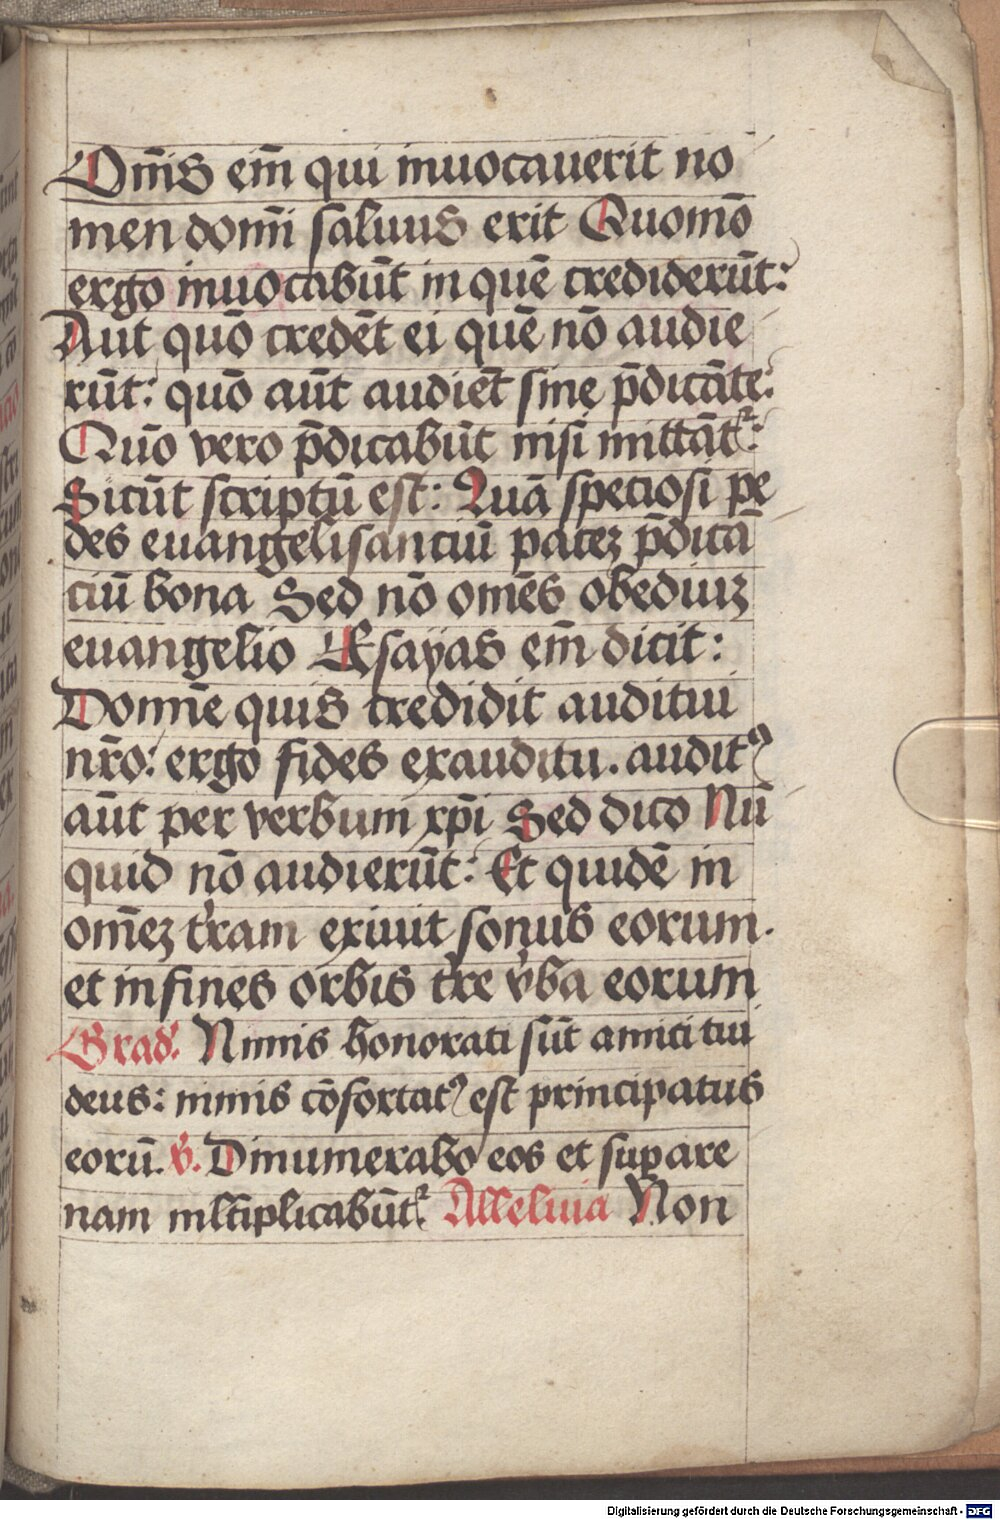 Om̄is em̄ qui inuocauerit no
men domī saluus erit Quomō
ergo inuocabūt in quē crediderūt:
Aut quō credēt ei quē nō audie
rūt: quō aūt audiēt sine p̄dicāte:
Quō vero p̄dicabūt nisi mittāt᷑:
Sicūt scriptū est: Quā speciosi pe
des euangelisanciū pacēꝫ p̄dicā
ciū bona Sed nō omēs obediūꝫ
euangelio Esayas em̄ dicit:
Domīe quis credidit auditui
nr̄o: ergo fides exauditu. auditꝰ
aūt per verbum xp̄i Sed dico Nū
quid nō audierūt: Et quidē in
om̄eꝫ t̓ram exiuit sonus eorum.
et in fines orbis t̓re v̓ba eorum
Grad̓. Nimis honorati sūt amici tui
deus: nimis cōfortatꝰ est principatus
eorū. v̓. Dinumerabo eos et suꝑ are
nam ml̄tiplicabūt᷑ Alleluia Non
Digitalisierung gefördert durch die Deutsche Forschungsgemeinschaft - DFG